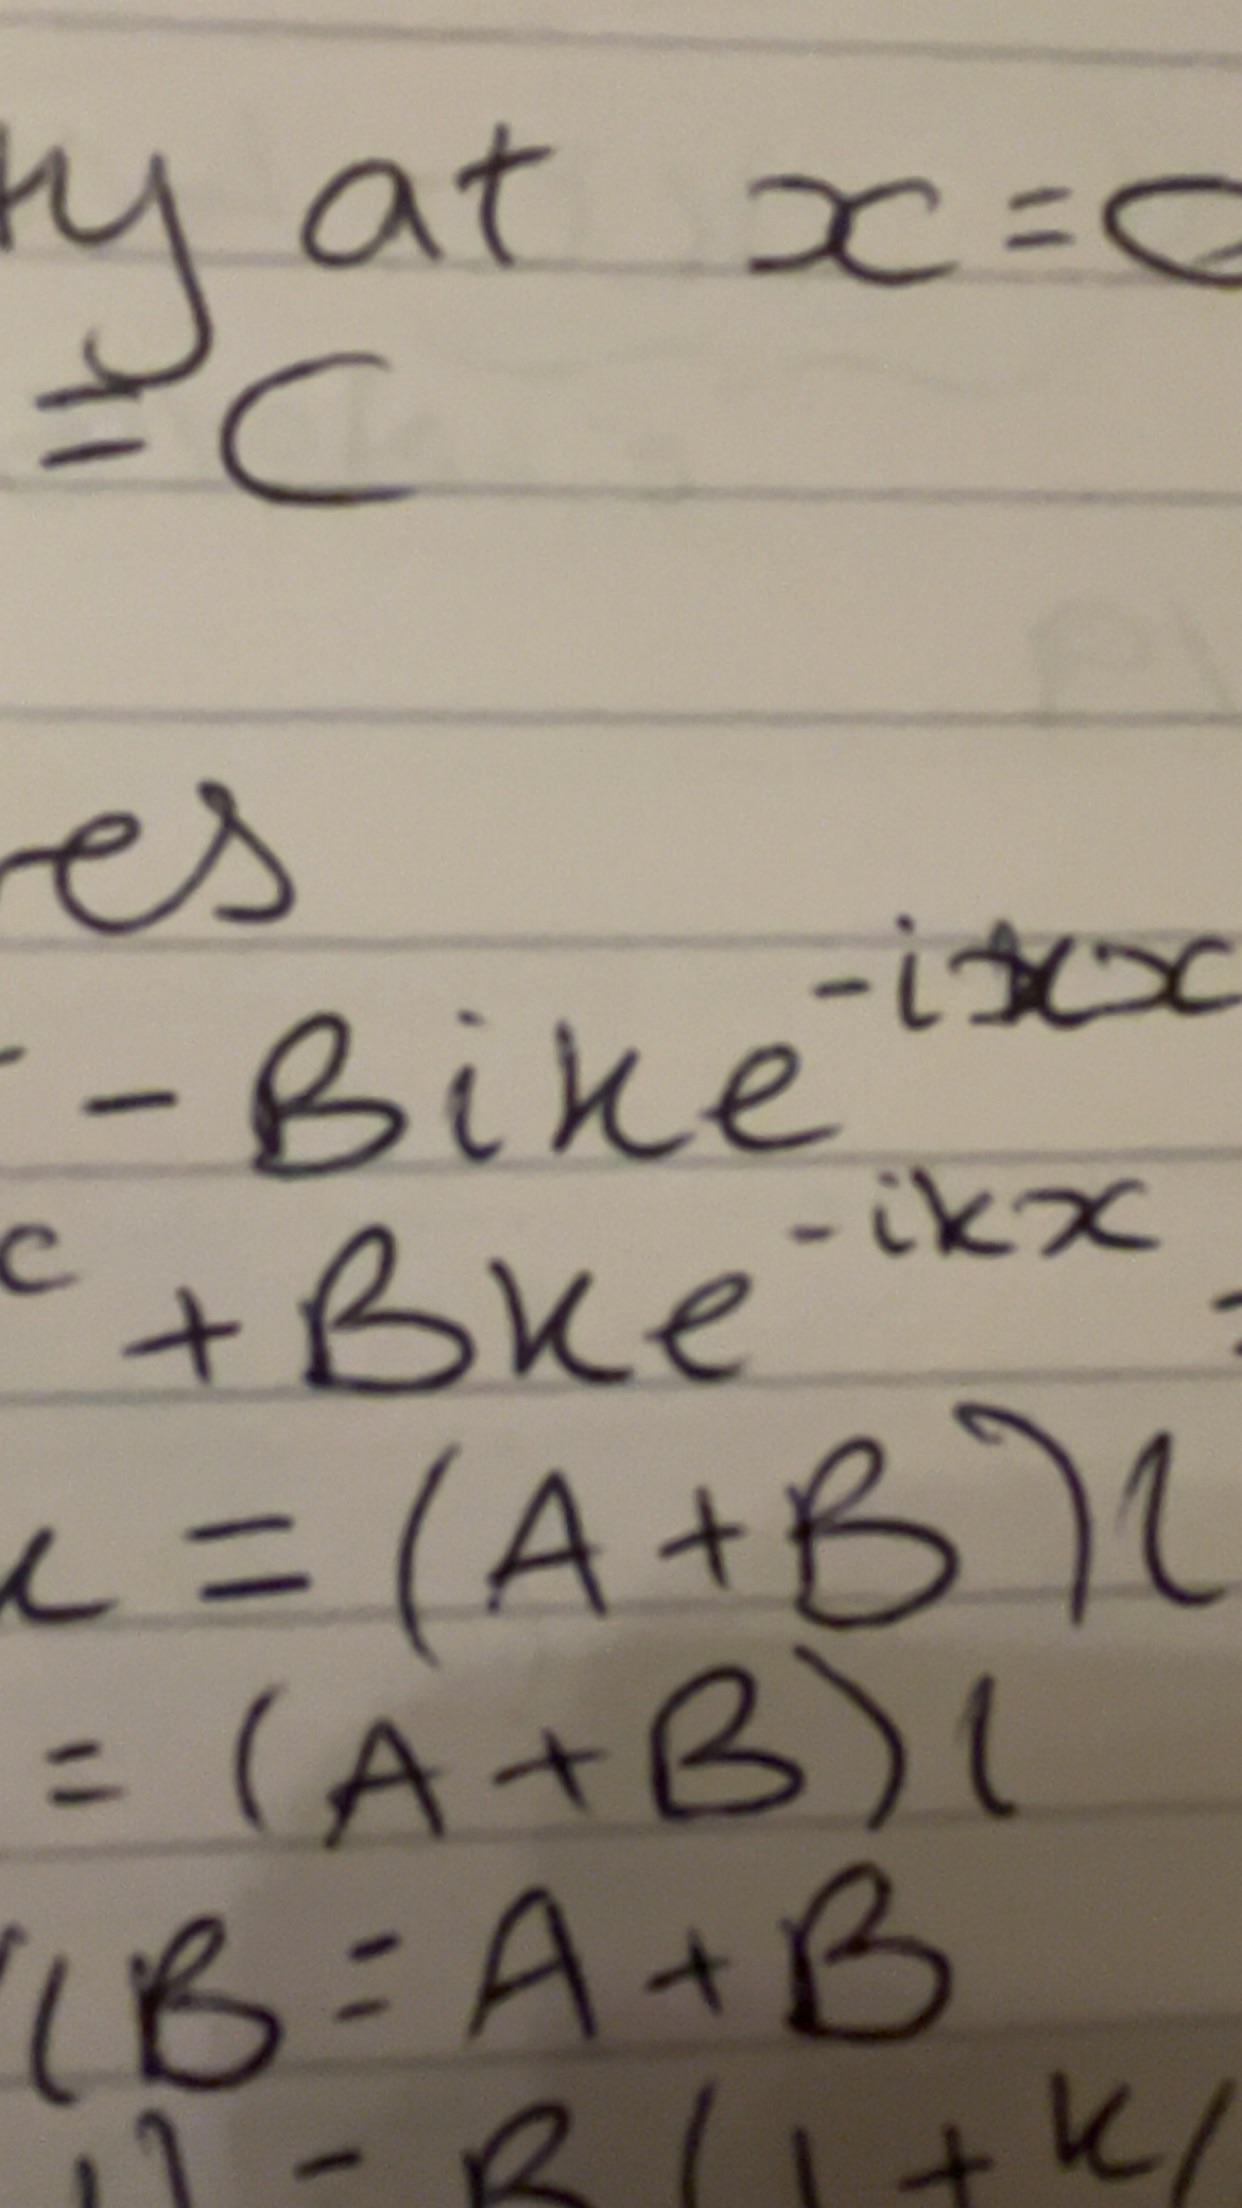 ty at x=0
= C
res
- Bike^{-ikx}
+ Bke^{-ikx}
= (A+B)l
= (A+B)l
lB = A+B
= B(1+k/